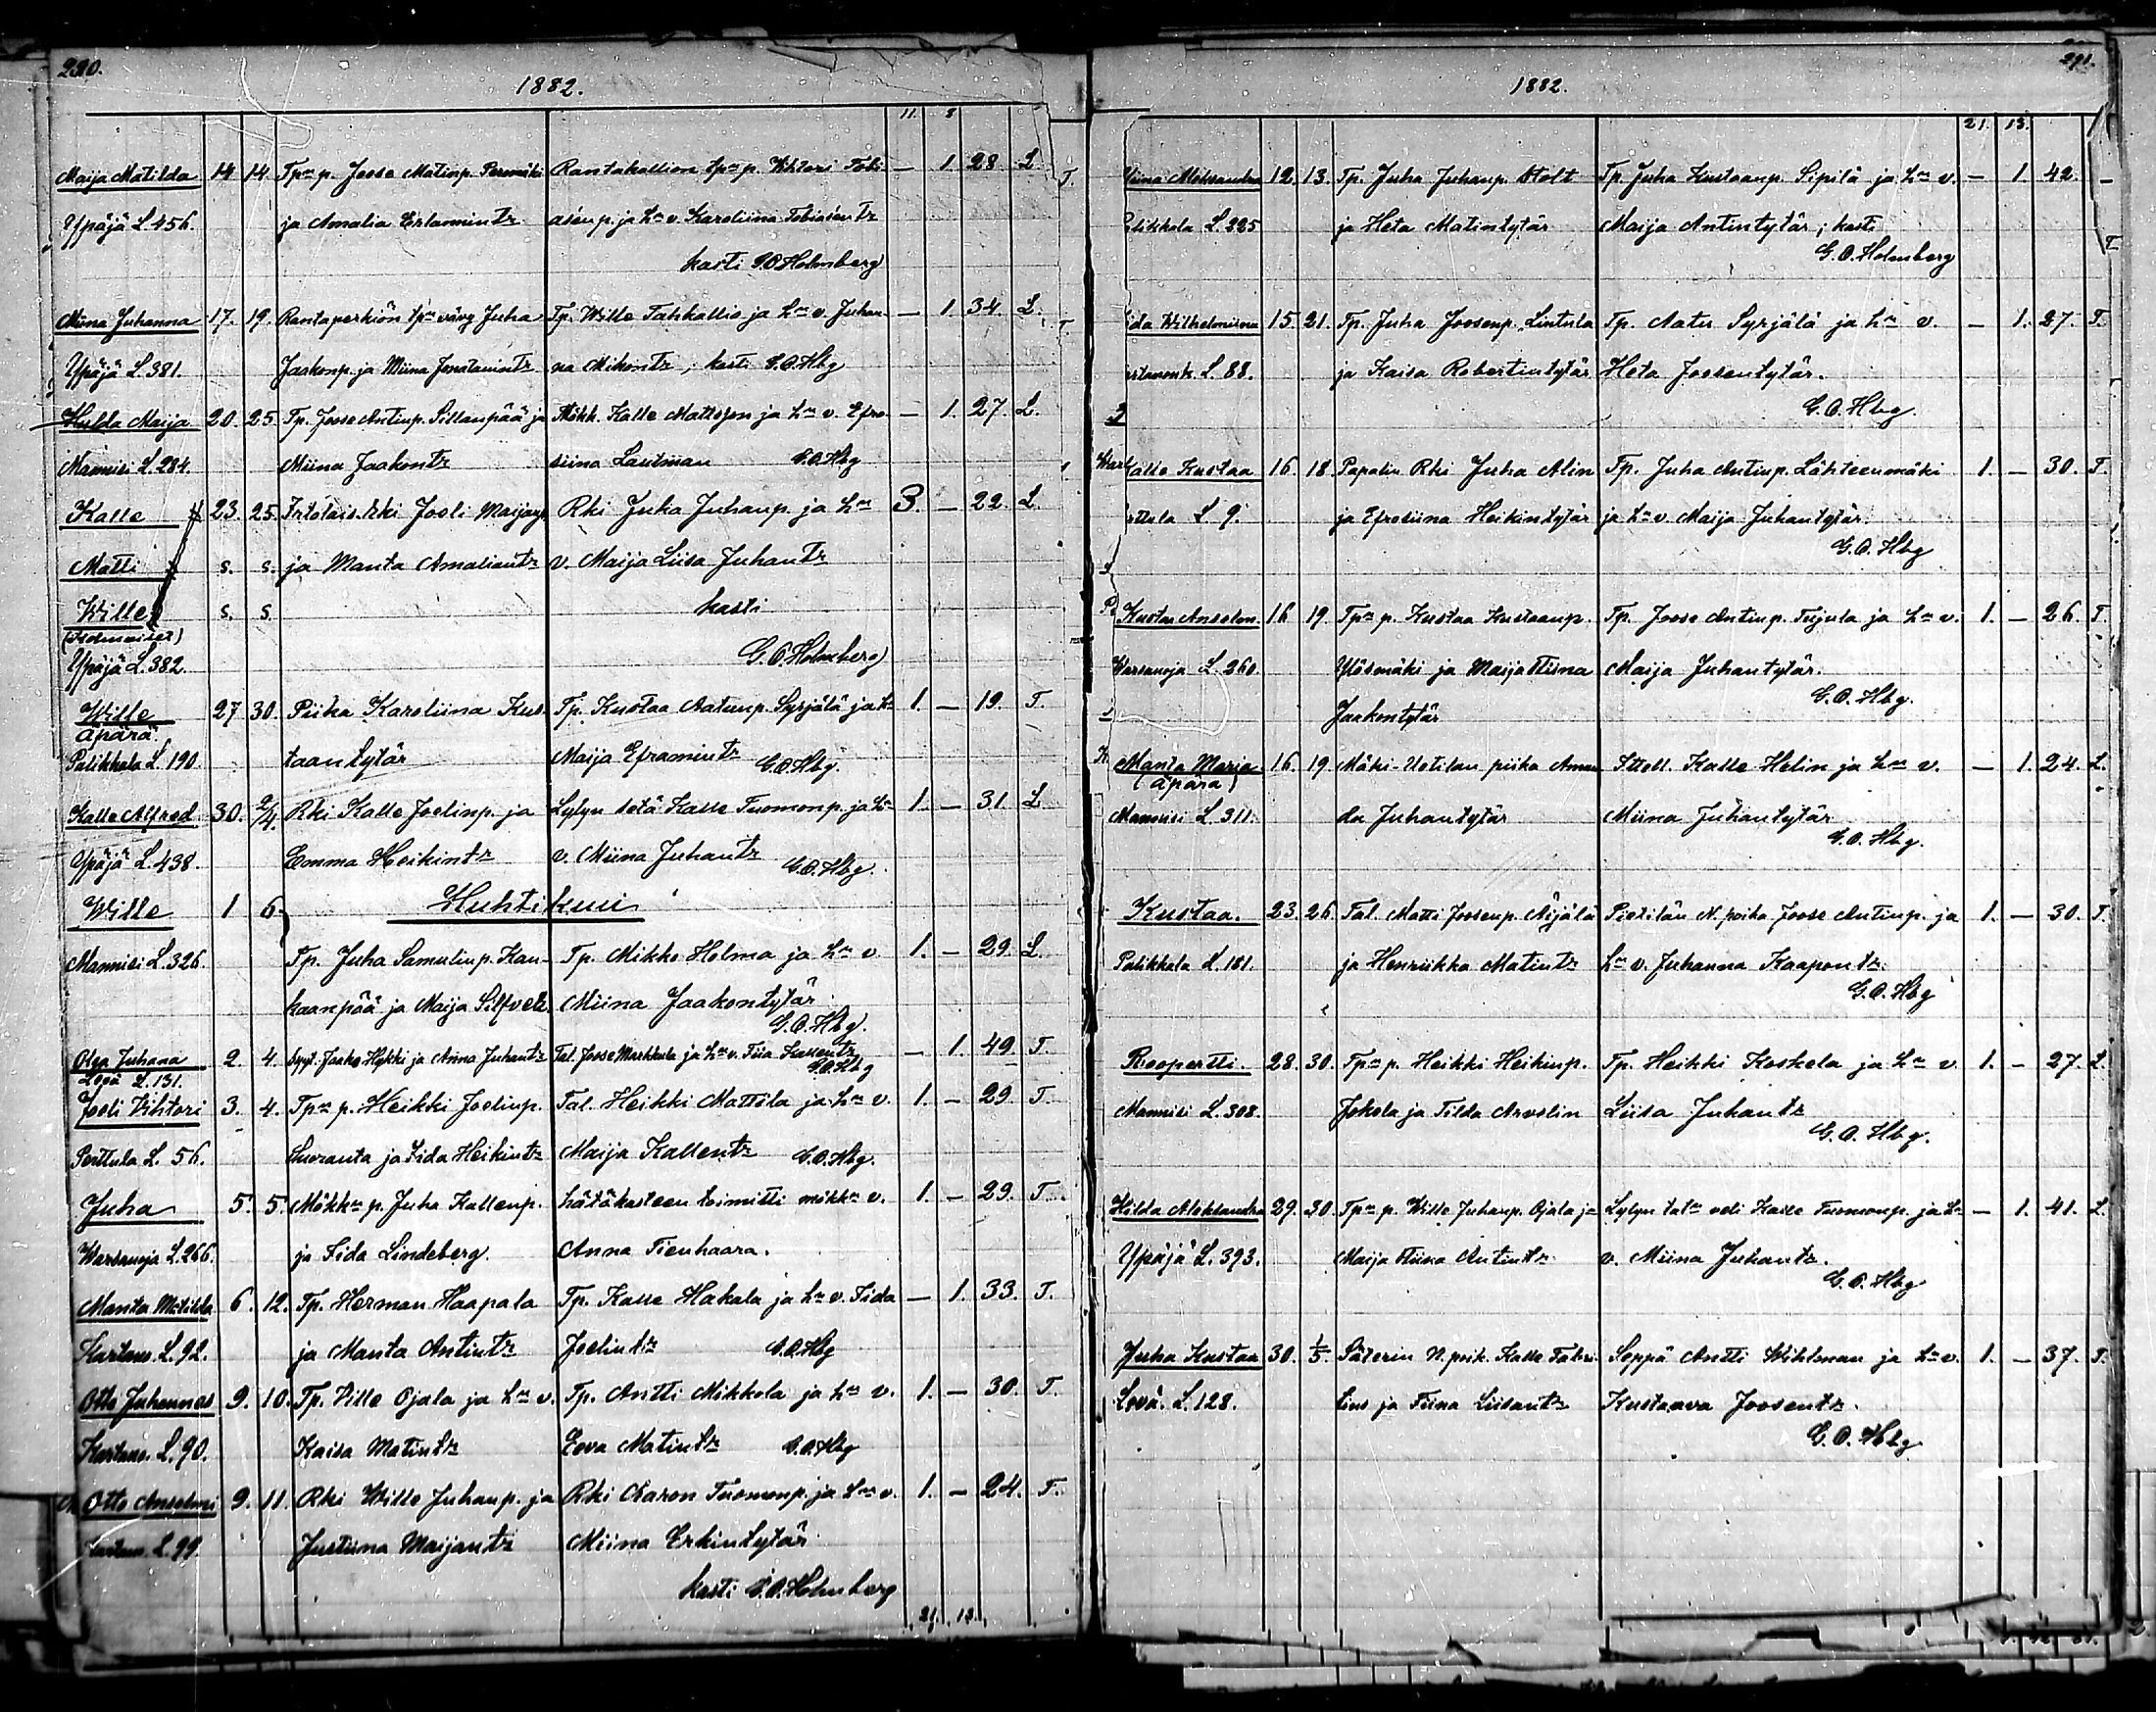 290.
1882.
11. 8
Maija Matilda 14 14 Tpn p. Joose Matinp. Peremäki Rantakallion tpn p. Vihtori Tobi- — 1. 28. L
Ypäjä L. 456. ja Amalia Erlanintr aśenp. ja hn v. Karoliina Tobiaśentr
kasti G O Holmberg
Miina Juhanna 17. 19. Rantaperkiön tpn vävy Juha Tp. Wille Tahkallio ja hn v. Juhan- — 1. 34. L.
Ypäjä L. 381. Jaakonp. ja Miina Jonatanintr na Mikontr, kasti G.O.Hbg
Hulda Maija 20. 25. Tp. Joose Antinp. Sillanpää ja Mökk. Kalle Mattsson ja hn v. Efro- — 1. 27 L.
Mannisi L. 284 Miina Jaakontr siina Lautman G.O.Hbg
Kalle 23. 25. Irtolais. Rki Jooli Maijanp. Rki Juha Juhanp ja hn 3. — 22. L.
Matti s. s. ja Manta Amaliantr v. Maija Liisa Juhantr
Wille s. s. kasti
(Kolmoiset) G. O. Holmberg
Ypäjä L. 382.
Wille 27 30. Piika Karoliina Kus- Tp. Kustaa Aatunp. Syrjälä ja hn 1. — 19. T.
äpärä.
Palikkala L. 190. taantytär Maija Eframintr G.O.Hbg.
Kalle Alfred. 30. 2/4. Rki Kalle Joelinp. ja Lylyn setä Kalle Tuomonp. ja hn 1. — 31. L
Ypäjä L. 438. Emma Heikintr v. Miina Juhantr G.O.Hbg.
Wille 1 6. Huhtikuu
Mannisi L. 326. Tp. Juha Samulinp. Kan- Tp. Mikko Holma ja hn v. 1. — 29. L.
kaanpää ja Maija Silfvelä Miina Jaakontytär
G.O.Hbg.
Olga Juhana 2. 4. Jaako Hykki ja Anna Juhantr Tal. Joose Markkula ja hn v. Tiia Kallentr — 1. 49. T.
Levä L. 131. G.O.Hbg
Joeli Vihtori 3. 4. Tpn p. Heikki Joelinp. Tal. Heikki Mattila ja hn v. 1. — 29. T.
Perttula L. 56. Suoranta ja Fida Heikintr Maija Kallentr G.O.Hbg.
Juha 5. 5. Mökkn p. Juha Kallenp. hätäkasteen toimitti mökkn v. 1. — 29. T.
Warsanoja L. 266. ja Fida Lindeberg. Anna Tienhaara.
Manta Matilda 6. 12. Tp. Herman Haapala Tp. Kalle Hakala ja hn v. Fida — 1. 33. T.
Kartano. L. 92. ja Manta Antintr Joelintr G.O.Hbg
Otto Juhannes 9. 10. Tp. Ville Ojala ja hn v. Tp. Antti Mikkola ja hn v. 1. — 30. T.
Kartano. L. 90. Kaisa Matintr Eeva Matintr G.O.Hbg
Otto Anselmi 9. 11. Rki Wille Juhanp. ja Rki Aaron Tuomonp. ja hn v. 1. — 24. T.
Kartano. L. 99. Justiina Maijantr Miina Erkintytär
kasti G.O.Holmberg
21. 13.
291.
1882.
21. 13.
Miina Aleksandra 12. 13. Tp. Juha Juhanp. Stolt Tp. Juha Kustaanp. Sipilä ja hn v. — 1. 42. —
Palikkala L. 225 ja Heta Matintytär Maija Antintytär, kasti
G.O.Holmberg
Fida Wilhelmiina 15. 21. Tp. Juha Joosenp. Lintula Tp. Aatu Syrjälä ja hn v. — 1. 27. T.
L. 88. ja Kaisa Robertintytär Heta Joosentytär.
G.O.Hbg.
Kalle Kustaa 16. 18. Papalin Rki Juha Alin Tp. Juha Antinp. Lähteenmäki 1. — 30. T.
Perttula L. 9. ja Efrosiina Heikintytär ja hn v. Maija Juhantytär.
G.O.Hbg
Kustaa Anselm 16 19. Tpn p. Kustaa Kustaanp. Tp. Joose Antinp. Tujula ja hn v. 1. — 26. T.
Warsanoja L. 260. Ylösmäki ja Maija Stiina Maija Juhantytär.
Jaakontytär G.O.Hbg.
Manta Maria 16. 19 Mäki-Uotilan piika Aman- Ittell. Kalle Helin ja hn v. — 1. 24. L.
(äpärä)
Mannisi L. 311. da Juhantytär Miina Juhantytär
G.O.Hbg.
Kustaa. 23. 26. Tal. Matti Joosenp. Äijälä Pietilän N. poika Joose Antinp. ja 1. — 30. T.
Palikkala L. 181. ja Henriikka Matintr hn v. Juhanna Kaapontr.
G.O.Hbg
Roopertti. 28. 30. Tpn p. Heikki Heikinp. Tp. Heikki Koskela ja hn v. 1. — 27. L.
Mannisi L. 308. Jokela ja Tilda Arvelin Liisa Juhantr
G.O.Hbg.
Hilda Aleksandra 29. 30. Tpn p. Wille Juhanp. Ojala ja Lylyn taln veli Kalle Tuomonp. ja hn — 1. 41. L.
Ypäjä L. 393. Maija Stiina Antintr v. Miina Juhantr.
G.O.Hbg
Juha Kustaa 30. 1/5. Säterin N. poik. Kalle Fabri- Seppä Antti Wihlman ja hn v. 1. — 37. T.
Levä. L. 128. tius ja Tiina Liisantr Kustaava Joosentr.
G.O.Hbg.